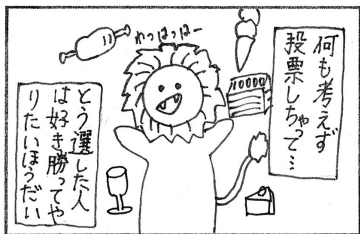 何も考えず
投票しちゃって…
わっはっはー
10000
とう選した人
は好き勝ってや
りたいほうだい